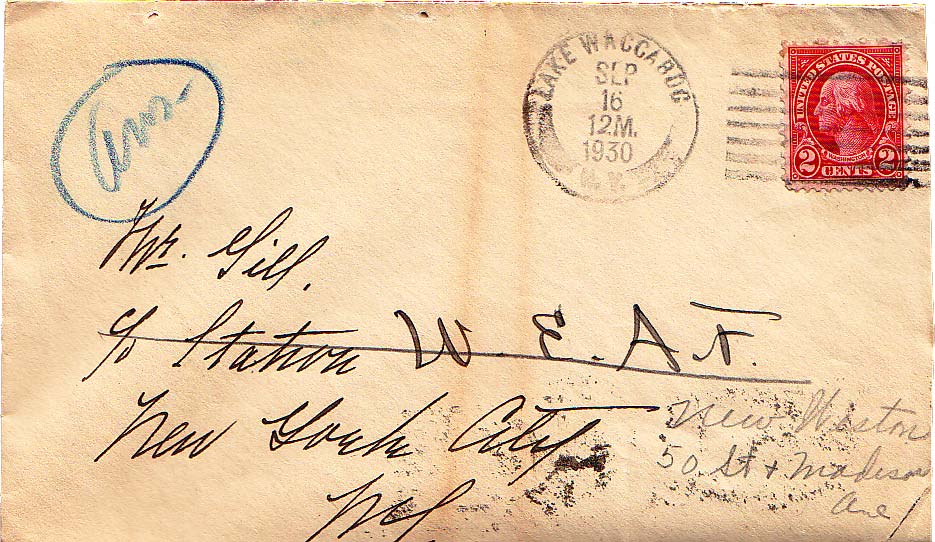 Ans
LAKE WACCABUC
SEP
16
12 M.
1930
N. Y.
UNITED STATES POSTAGE
WASHINGTON
2 CENTS 2
Mr. Gill,
c/o Station W. E. A. F.
New York City
NY
New Weston
50 St + Madison
Ave